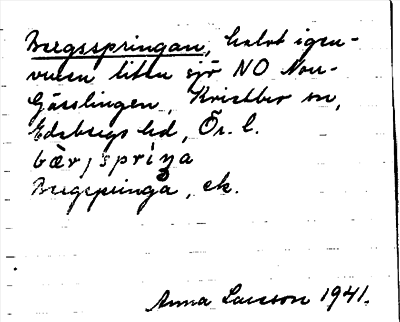 Bergsspringan, halvt igen-
vuxen liten sjö NO Norr-
Gässlingen, Kristber sn,
Edsbergs hd, Ör. l.
bær̩jspriŋa
Bergspringa, ek.
Anna Larsson 1941.